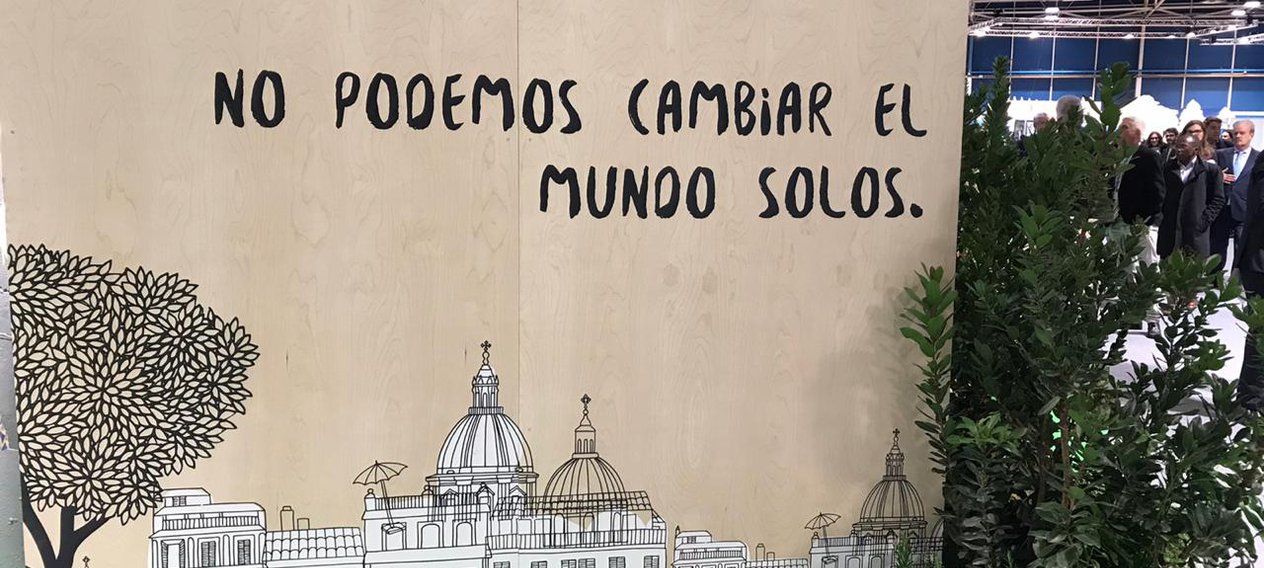 NO PODEMOS CAMBIAR EL
MUNDO SOLOS.